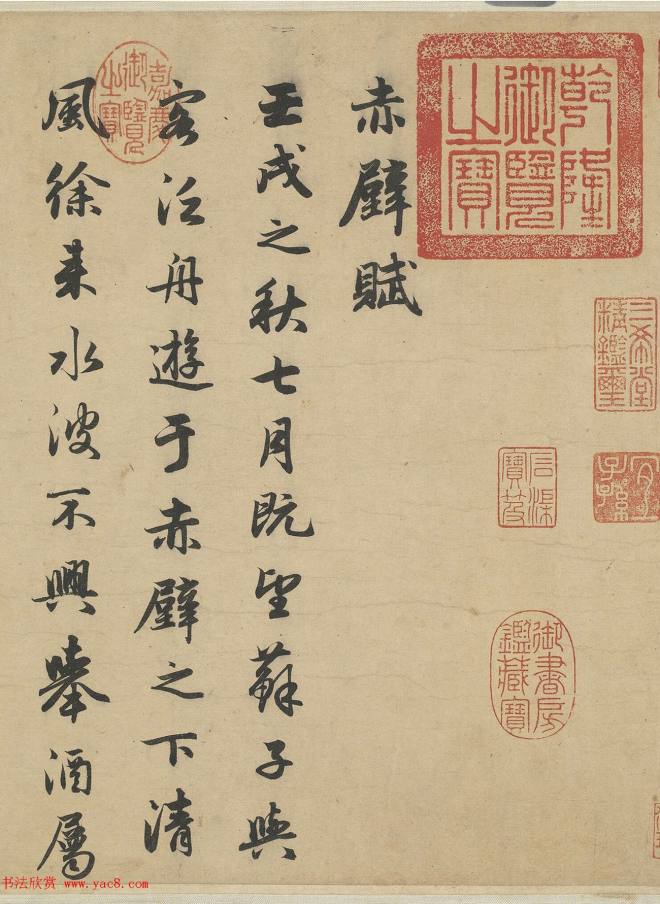 乾隆御覽之寶
三希堂精鑑璽
宜子孫
石渠寶笈
御書房鑑藏寶
赤壁賦
壬戌之秋七月既望蘇子與
客泛舟遊于赤壁之下清
風徐来水波不興舉酒屬
嘉慶御覽之寶
书法欣赏 www.yac8.com